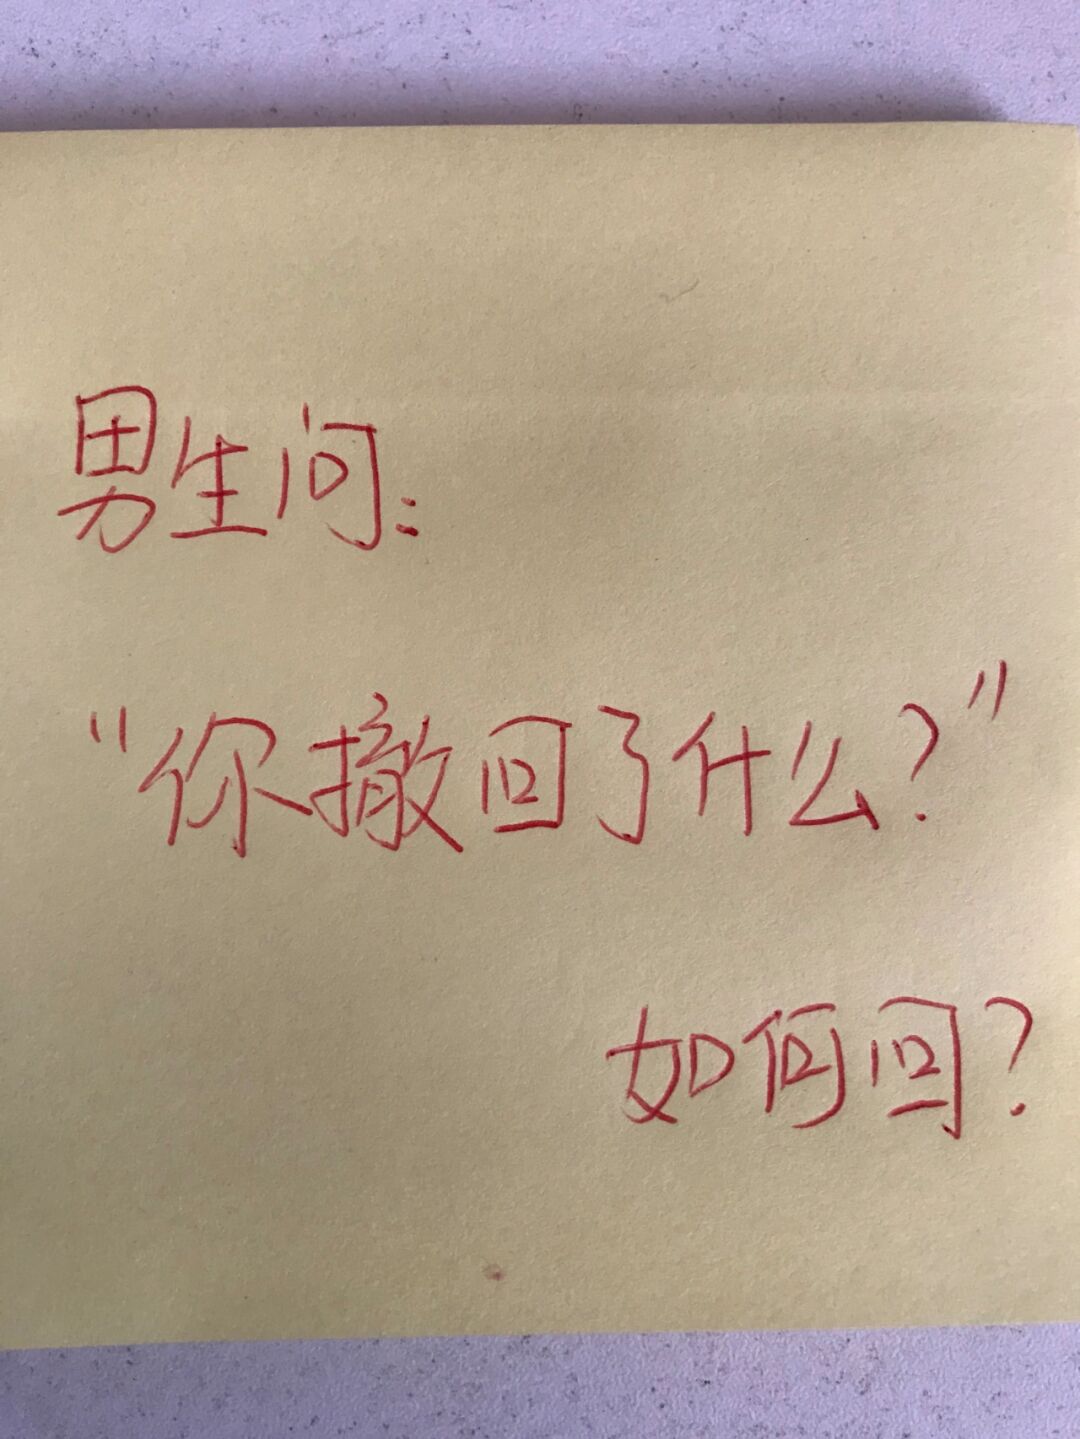 男生问:
“你撤回了什么?”
如何回?